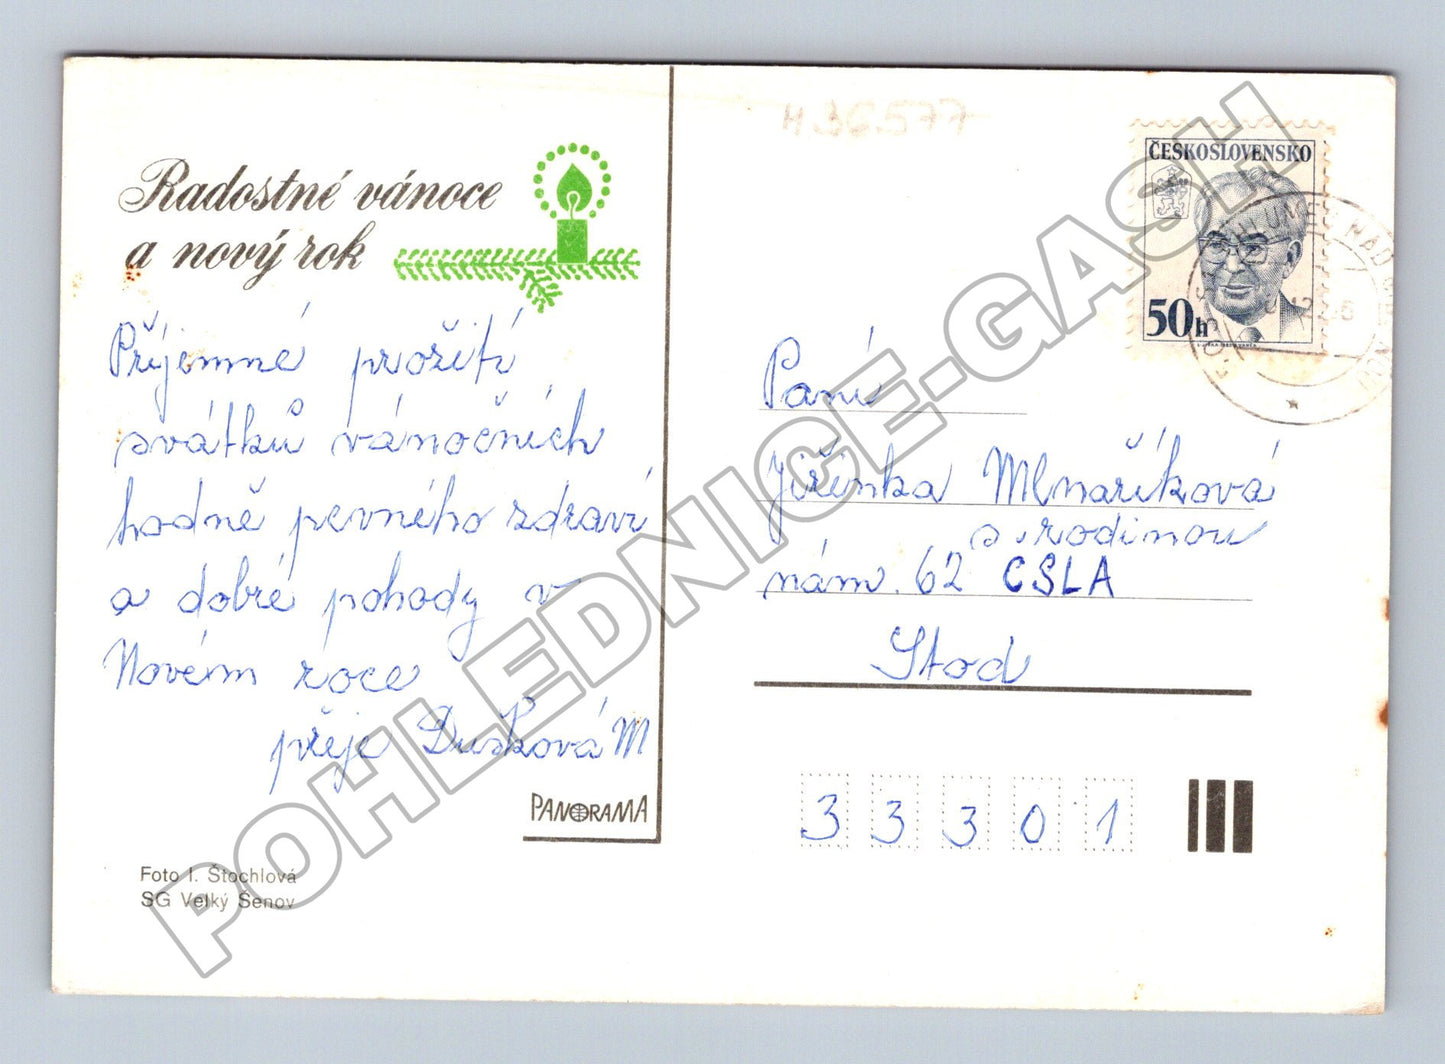 H 36577
Radostné vánoce
a nový rok
Příjemné prožití
svátků vánočních
hodně pevného zdraví
a dobré pohody v
Novém roce
přeje Dušková M
PANORAMA
Foto I. Štochlová
SG Velký Šenov
ČESKOSLOVENSKO
50h
Paní
Jiřinka Mlnaříková
s rodinou
nám. 62 ČSLA
Stod
33301
POHLEDNICE-GASH